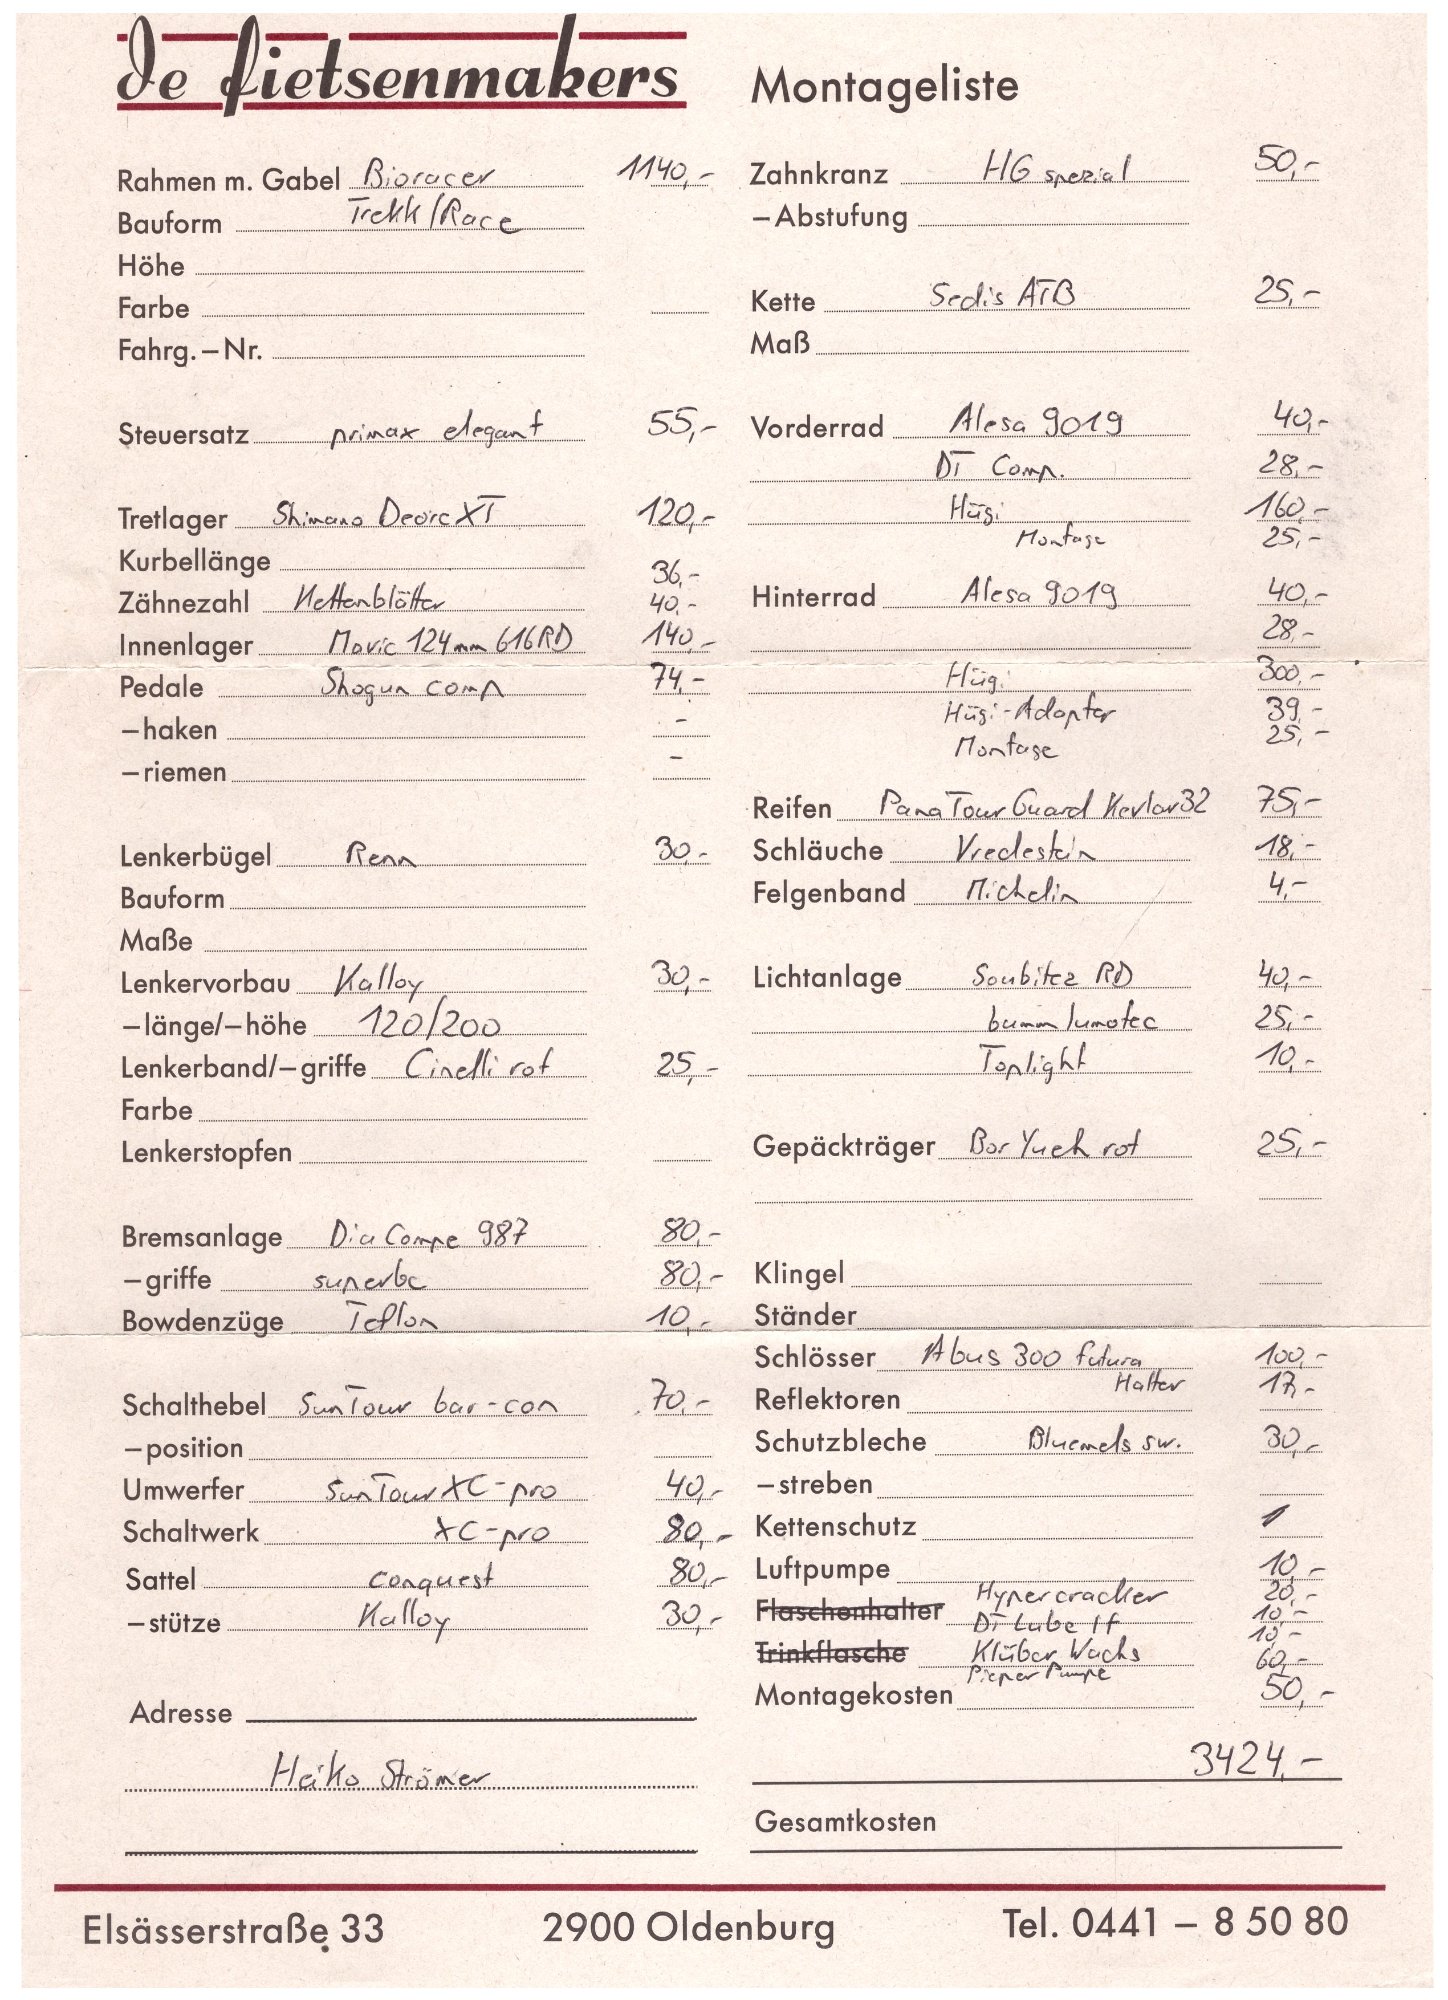 de fietsenmakers
Montageliste
Rahmen m. Gabel Bioracer 1140,-
Bauform Trekk/Race
Höhe
Farbe
Fahrg.–Nr.
Steuersatz primax elegant 55,-
Tretlager Shimano Deore XT 120,-
Kurbellänge 36,-
Zähnezahl Kettenblätter 40,-
Innenlager Mavic 124mm 616RD 140,-
Pedale Shogun comp 74,-
–haken -
–riemen -
Lenkerbügel Renn 30,-
Bauform
Maße
Lenkervorbau Kalloy 30,-
–länge/–höhe 120/200
Lenkerband/–griffe Cinelli rot 25,-
Farbe
Lenkerstopfen
Bremsanlage Dia Compe 987 80,-
–griffe superbe 80,-
Bowdenzüge Teflon 10,-
Schalthebel SunTour bar-con 70,-
–position
Umwerfer SunTour XC-pro 40,-
Schaltwerk XC-pro 80,-
Sattel conquest 80,-
–stütze Kalloy 30,-
Adresse
Heiko Strömer
Zahnkranz HG spezial 50,-
–Abstufung
Kette Sedis ATB 25,-
Maß
Vorderrad Alesa 9019 40,-
DT Comp. 28,-
Hügi 160,-
Montage 25,-
Hinterrad Alesa 9019 40,-
28,-
Hügi 300,-
Hügi-Adapter 39,-
Montage 25,-
Reifen PanaTour Guard Kevlar 32 75,-
Schläuche Vredestein 18,-
Felgenband Michelin 4,-
Lichtanlage Soubitez RD 40,-
bumm lumotec 25,-
Toplight 10,-
Gepäckträger Bor Yueh rot 25,-
Klingel
Ständer
Schlösser Abus 300 futura 100,-
Halter 17,-
Reflektoren
Schutzbleche Bluemels sw. 30,-
–streben
Kettenschutz
Luftpumpe 10,-
Flaschenhalter Hypercracker 20,-
DT Lube 1f 10,-
Trinkflasche Klüber Wachs 10,-
Pieper Pumpe 60,-
Montagekosten 50,-
3424,-
Gesamtkosten
Elsässerstraße 33 2900 Oldenburg Tel. 0441 – 8 50 80